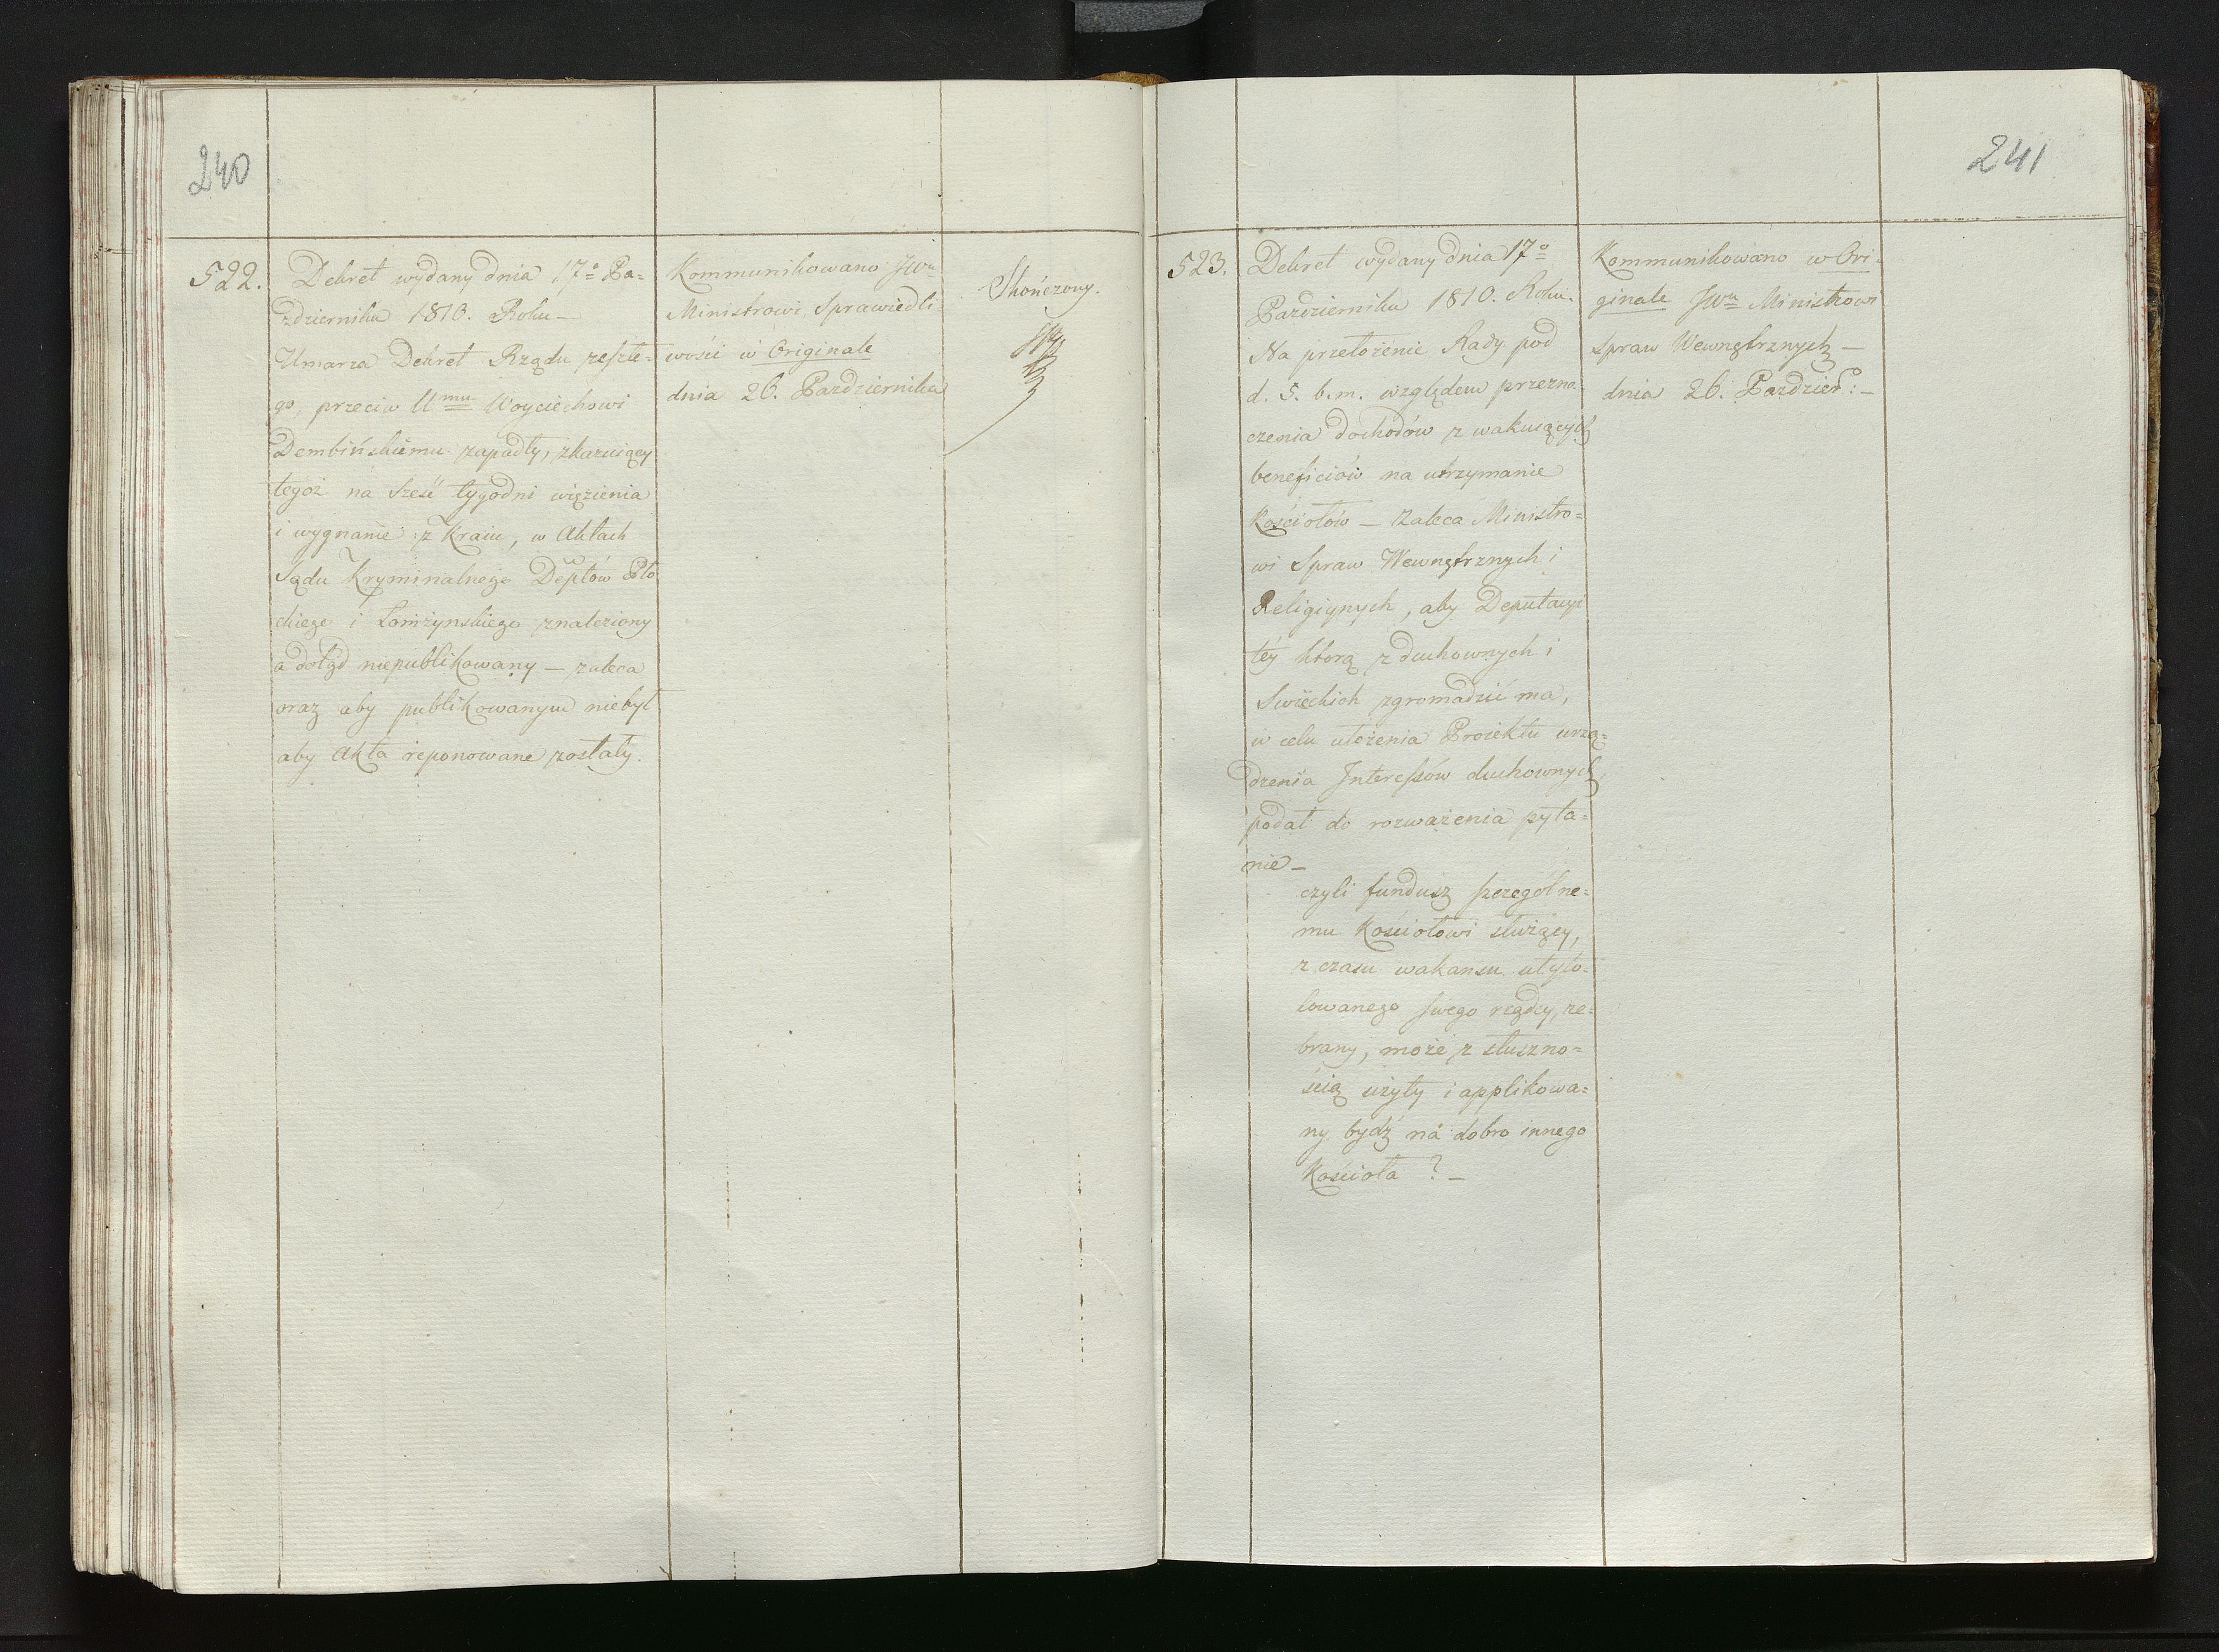 240
522.
Dekret wydany dnia 17º Pa=
zdziernika 1810. Roku —
Umarza Dekret Rządu reszłe=
go, przeciw Umu Woyciechowi
Dembińskiemu zapadły, skazuiący
tegoż na sześć tygodni więzienia
i wygnanie z Kraiu, w Aktach
Sądu Kryminalnego Deptów Pło
ckiego i Łomżynskiego znaleziony
a dotąd niepublikowany — zaleca
oraz aby publikowanym niebył
aby Akta reponowane zostały.
Kommunikowano JWu
Ministrowi Sprawiedli-
wości w Originale
dnia 26. Pazdziernika
Skończony.
241
523.
Dekret wydany dnia 17º
Pazdziernika 1810. Roku.
Na przełożenie Rady pod
d. 5. b. m. względem przezna
czenia dochodów z wakuiących
beneficiów na utrzymanie
Kościołów — Zaleca Ministro=
wi Spraw Wewnętrznych i
Religiynych, aby Deputacyi
téy którą z duchownych i
Swieckich zgromadzić ma,
w celu ułożenia Proiektu urzą=
dzenia Interessów duchownych
podał do rozważenia pyta=
nie —
czyli fundusz szczegolne=
mu Kościołowi służący,
z czasu wakansu utytu=
lowanego swego rządcy, ze=
brany, może z słuszno=
ścią użyty i applikowa=
ny bydź na dobro innego
Kościoła ? —
Kommunikowano w Ori-
ginale JWu Ministrowi
Spraw Wewnętrznych —
dnia 26. Pazdzier: —